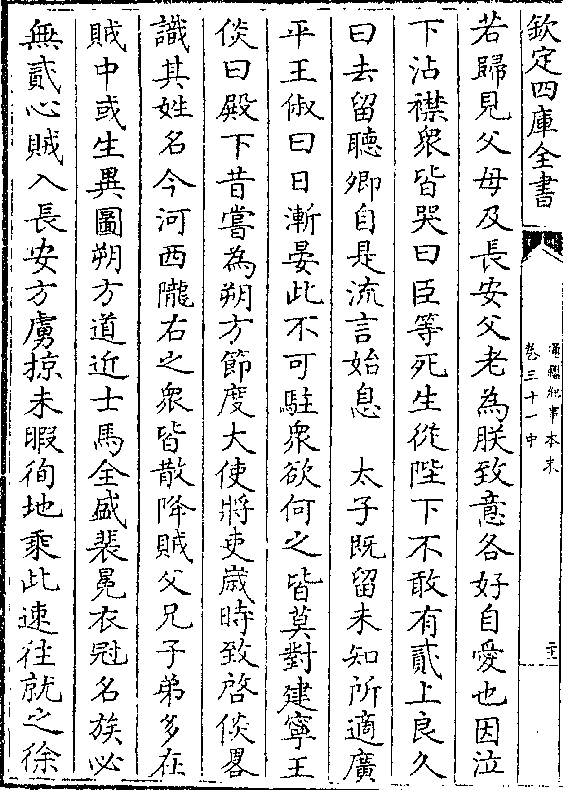 欽定四庫全書
通鑑紀事本末
卷三十一中
二十二
若歸見父母及長安父老為朕致意各好自愛也因泣
下沾襟衆皆哭曰臣等死生從陛下不敢有貳上良久
曰去留聽卿自是流言始息　太子既留未知所適廣
平王俶曰日漸晏此不可駐衆欲何之皆莫對建寧王
倓曰殿下昔嘗為朔方節度大使將吏歲時致啓倓畧
識其姓名今河西隴右之衆皆散降賊父兄子弟多在
賊中或生異圖朔方道近士馬全盛裴冕衣冠名族必
無貳心賊入長安方虜掠未暇徇地乘此速往就之徐